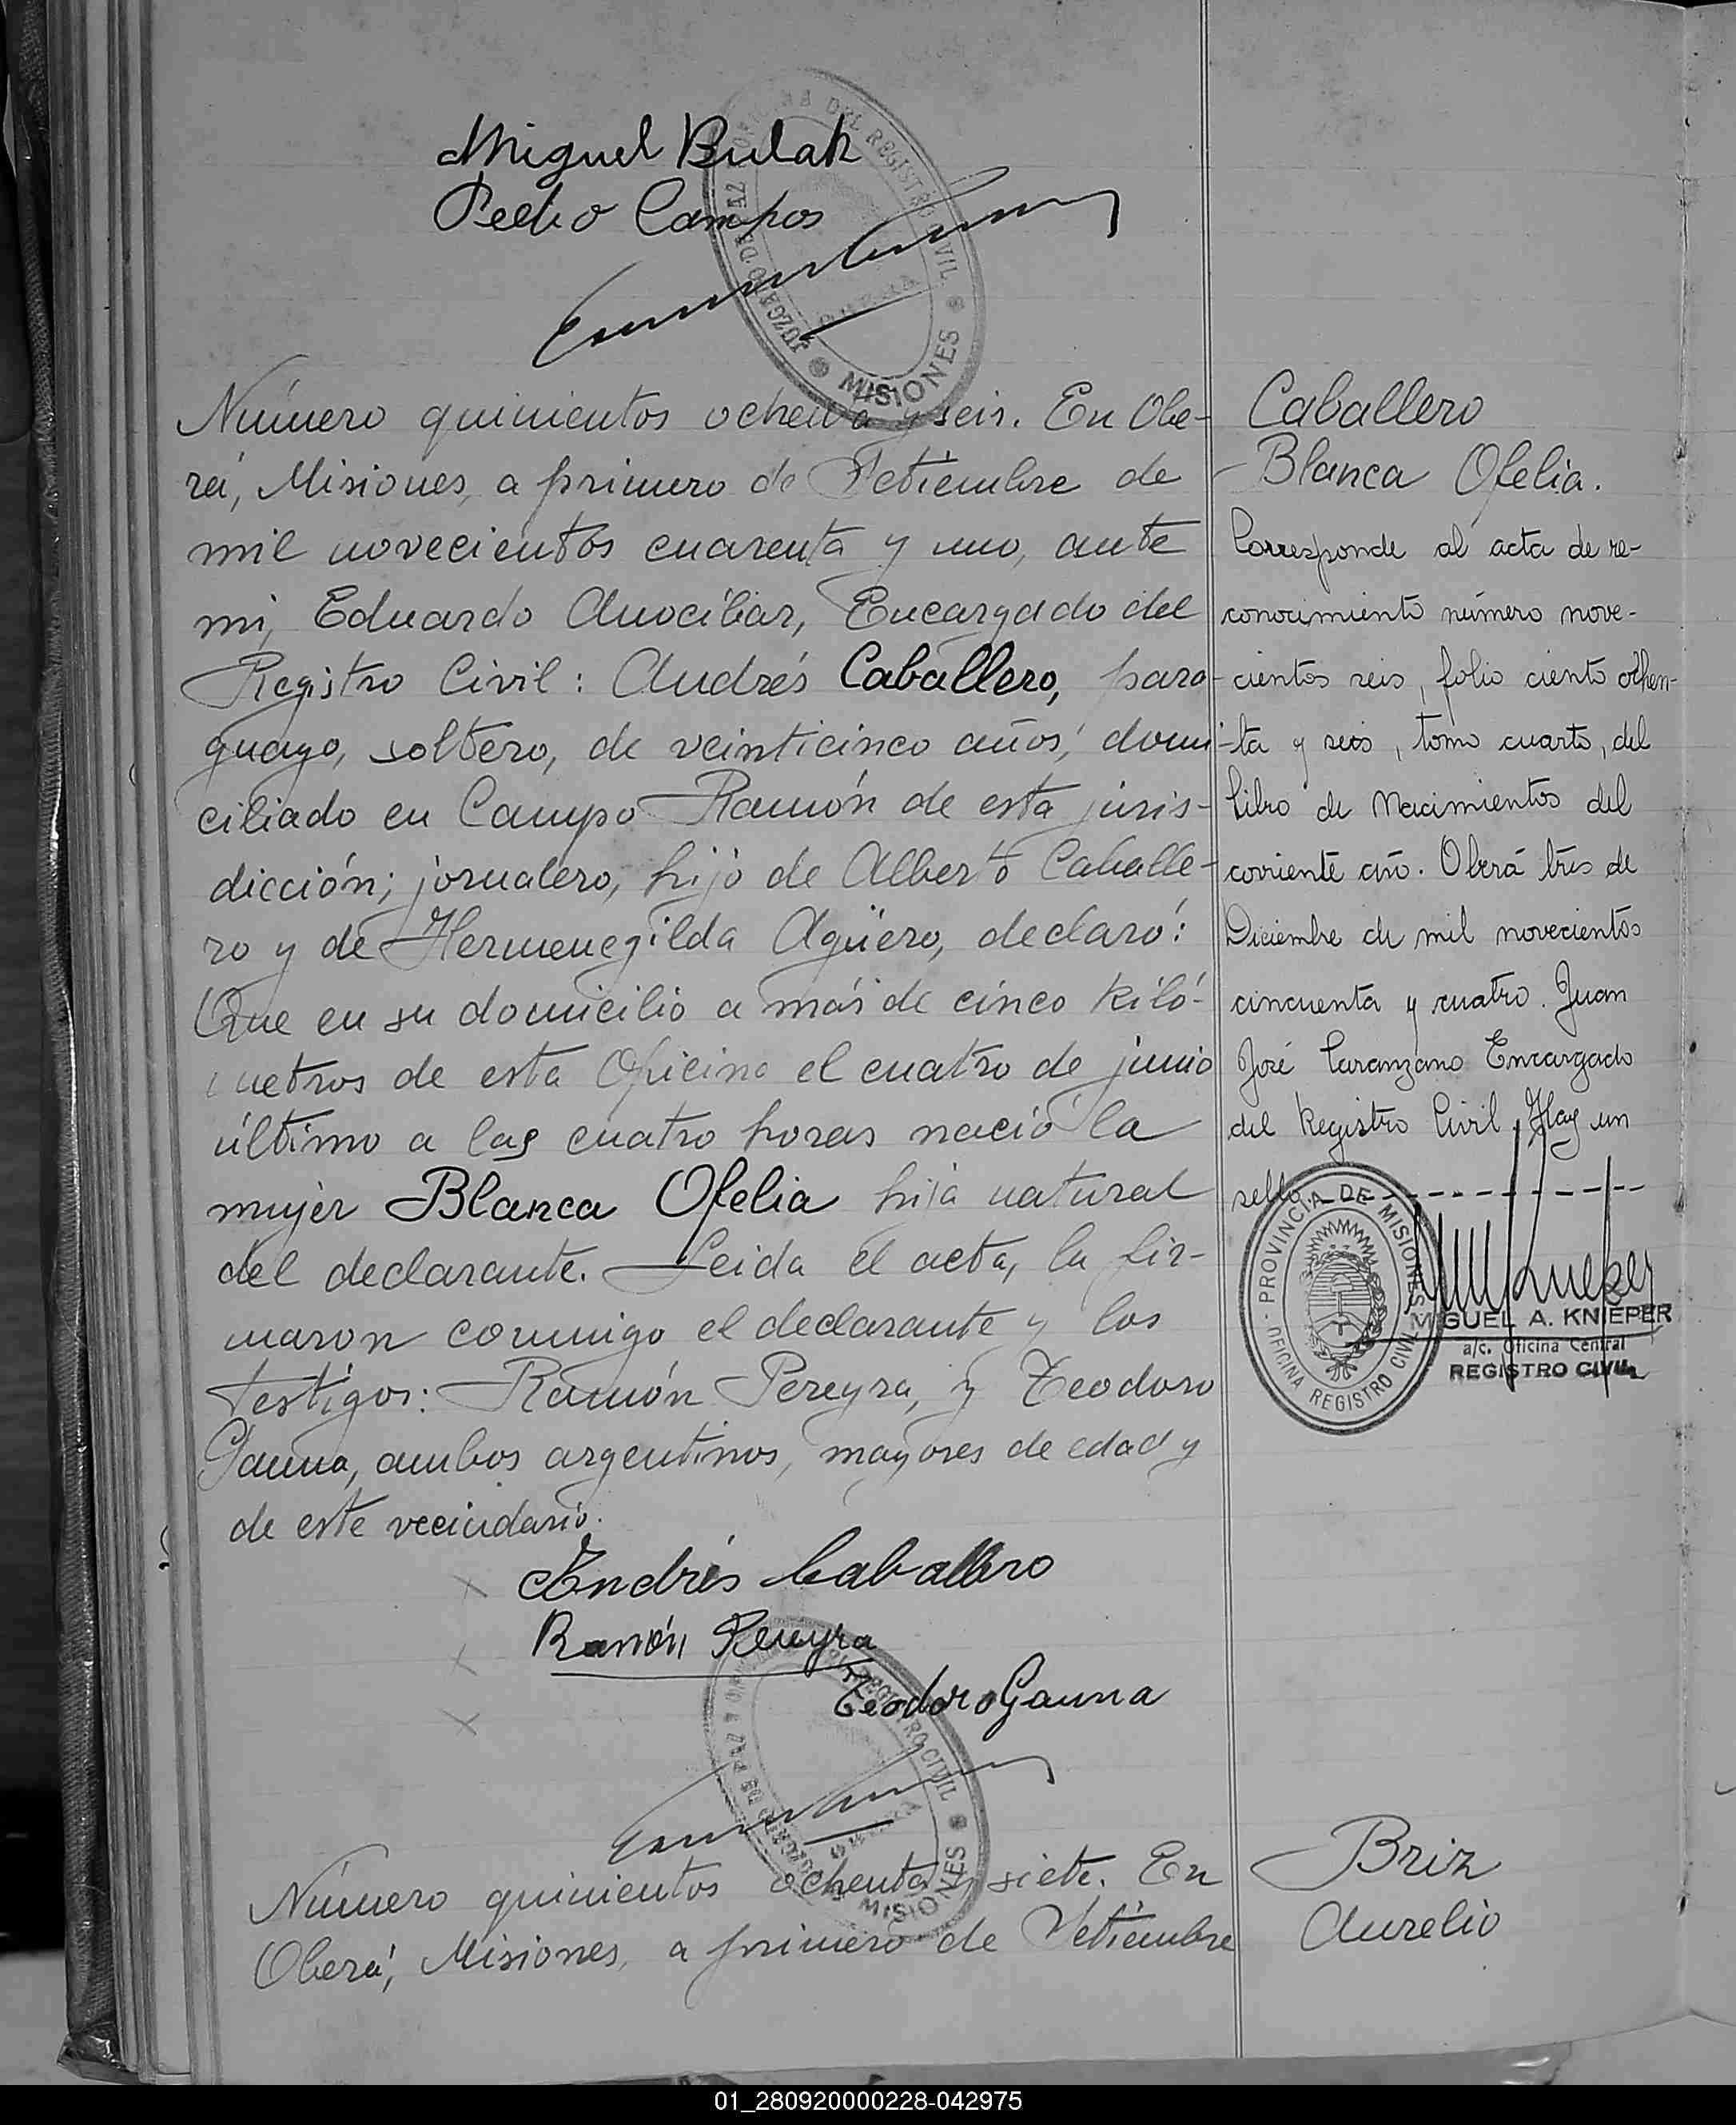 Miguel Bulak
Pedro Campos
JUZGADO DE PAZ Y OFICINA DEL REGISTRO CIVIL
MISIONES
Número quinientos ochenta y seis. En Obe-
rá, Misiones, a primero de Setiembre de
mil novecientos cuarenta y uno, ante
mi, Eduardo Anocíbar, Encargado del
Registro Civil: Andrés Caballero, para-
guayo, soltero, de veinticinco años, domi-
ciliado en Campo Ramón de esta juris-
dicción; jornalero, hijo de Alberto Caballe-
ro y de Hermenegilda Agüero, declaró:
Que en su domicilio a más de cinco kiló-
metros de esta Oficina el cuatro de junio
último a las cuatro horas nació la
mujer Blanca Ofelia hija natural
del declarante. Leida el acta, la fir-
maron conmigo el declarante y los
testigos: Ramón Pereyra, y Teodoro
Gauna, ambos argentinos, mayores de edad y
de este vecindario.
Andrés Caballero
Ramón Pereyra
Teodoro Gauna
REGISTRO CIVIL
MISIONES
Número quinientos ochenta y siete. En
Oberá, Misiones, a primero de Setiembre
Caballero
Blanca Ofelia.
Corresponde al acta de re-
conocimiento número nove-
cientos seis, folio ciento ochen-
ta y seis, tomo cuarto, del
libro de Nacimientos del
corriente año. Oberá tres de
Diciembre de mil novecientos
cincuenta y cuatro. Juan
José Caranzano Encargado
del Registro Civil. Hay un
sello.
PROVINCIA DE MISIONES
OFICINA REGISTRO CIVIL
MIGUEL A. KNIEPER
a/c. Oficina Central
REGISTRO CIVIL
Briz
Aurelio
01_280920000228-042975